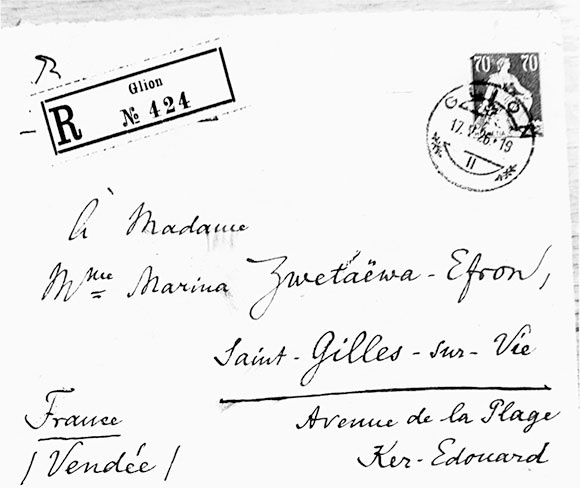 Glion
R
№ 424
70 70
GLION
17.V.26.19
II
À Madame
Mme Marina Zwetaëwa-Efron,
Saint-Gilles-sur-Vie
France
Avenue de la Plage
/Vendée/
Ker-Edouard